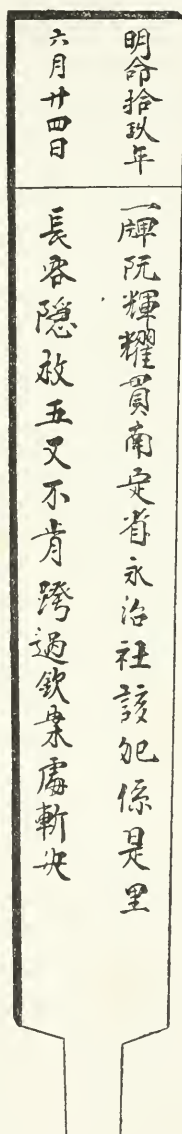 明命拾玖年
六月廿四日
一牌阮輝耀貫南定省永治社該犯係是里
長容隐放五又不肯跨過欽案處斬决